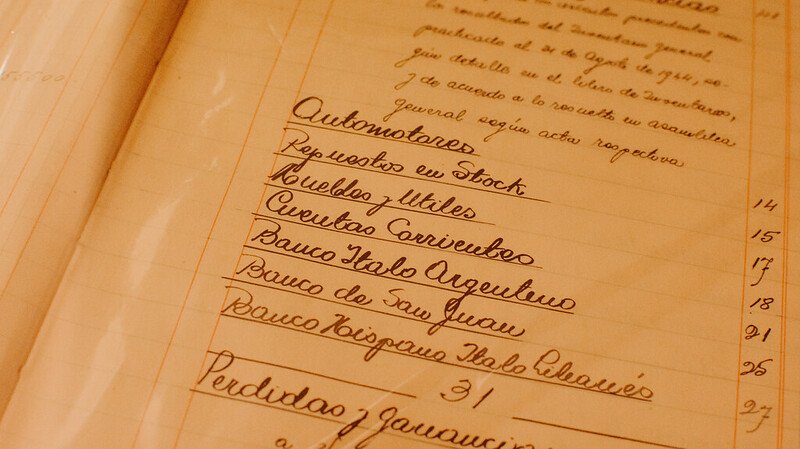 la resultados del Inventario general
practicado el 31 de Agosto de 1944, se-
gún detalle en el libro de Inventarios,
y de acuerdo a lo resuelto en asamblea
general según acta respectiva
Automotores 14
Repuestos en Stock 15
Muebles y Utiles 17
Cuentas Corrientes 18
Banco Italo Argentino 21
Banco de San Juan 25
Banco Hispano Italo Libanés 27
31
Perdidas y ganancias
a